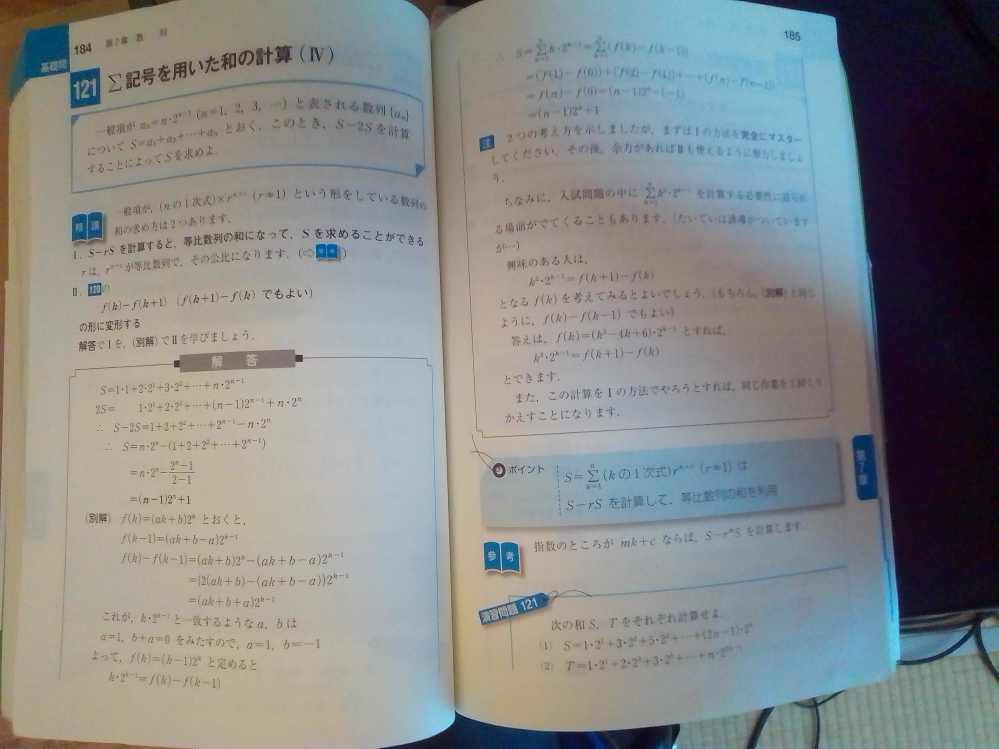 184 第7章 数 列
基礎問
121 Σ記号を用いた和の計算 (Ⅳ)
一般項が aₙ=n・2ⁿ⁻¹ (n=1, 2, 3, …) と表される数列 {aₙ}
について S=a₁+a₂+…+aₙ とおく. このとき, S−2S を計算
することによって S を求めよ.
精講
一般項が, (n の1次式)×rⁿ⁺ᶜ (r≠1) という形をしている数列の
和の求め方は2つあります.
Ⅰ. S−rS を計算すると, 等比数列の和になって, S を求めることができる
r は, rⁿ⁺ᶜ が等比数列で, その公比になります. (⇨参考)
Ⅱ. 120の
f(k)−f(k+1) (f(k+1)−f(k) でもよい)
の形に変形する
解答でⅠを, (別解)でⅡを学びましょう.
解 答
S=1・1+2・2¹+3・2²+…+n・2ⁿ⁻¹
2S= 1・2¹+2・2²+…+(n−1)2ⁿ⁻¹+n・2ⁿ
∴ S−2S=1+2+2²+…+2ⁿ⁻¹−n・2ⁿ
∴ S=n・2ⁿ−(1+2+2²+…+2ⁿ⁻¹)
=n・2ⁿ−(2ⁿ−1)/(2−1)
=(n−1)2ⁿ+1
(別解) f(k)=(ak+b)2ᵏ とおくと,
f(k−1)=(ak+b−a)2ᵏ⁻¹
f(k)−f(k−1)=(ak+b)2ᵏ−(ak+b−a)2ᵏ⁻¹
={2(ak+b)−(ak+b−a)}2ᵏ⁻¹
=(ak+b+a)2ᵏ⁻¹
これが, k・2ᵏ⁻¹ と一致するような a, b は
a=1, b+a=0 をみたすので, a=1, b=−1
よって, f(k)=(k−1)2ᵏ と定めると
k・2ᵏ⁻¹=f(k)−f(k−1)
185
∴ S=Σk・2ᵏ⁻¹=Σ(f(k)−f(k−1))
=(f(1)−f(0))+(f(2)−f(1))+…+(f(n)−f(n−1))
=f(n)−f(0)=(n−1)2ⁿ−(−1)
=(n−1)2ⁿ+1
注 2つの考え方を示しましたが, まずはⅠの方法を完全にマスター
してください. その後, 余力があればⅡも使えるように努力しましょ
う.
ちなみに, 入試問題の中に Σk²・2ᵏ⁻¹ を計算する必要性に迫られ
る場面がでてくることもあります. (たいていは誘導がついています
が…)
興味のある人は,
k²・2ᵏ⁻¹=f(k+1)−f(k)
となる f(k) を考えてみるとよいでしょう. (もちろん, (別解)と同じ
ように, f(k)−f(k−1) でもよい)
答えは, f(k)=(k²−4k+6)・2ᵏ⁻¹ とすれば,
k²・2ᵏ⁻¹=f(k+1)−f(k)
とできます.
また, この計算をⅠの方法でやろうとすれば, 同じ作業を2回くり
かえすことになります.
ポイント
S=Σ(k の1次式)rᵏ⁺ᶜ (r≠1) は
S−rS を計算して, 等比数列の和を利用
第7章
参考
指数のところが mk+c ならば, S−rᵐS を計算します.
演習問題 121
次の和 S, T をそれぞれ計算せよ.
(1) S=1・2¹+3・2²+5・2³+…+(2n−1)・2ⁿ
(2) T=1・2¹+2・2³+3・2⁵+…+n・2²ⁿ⁻¹